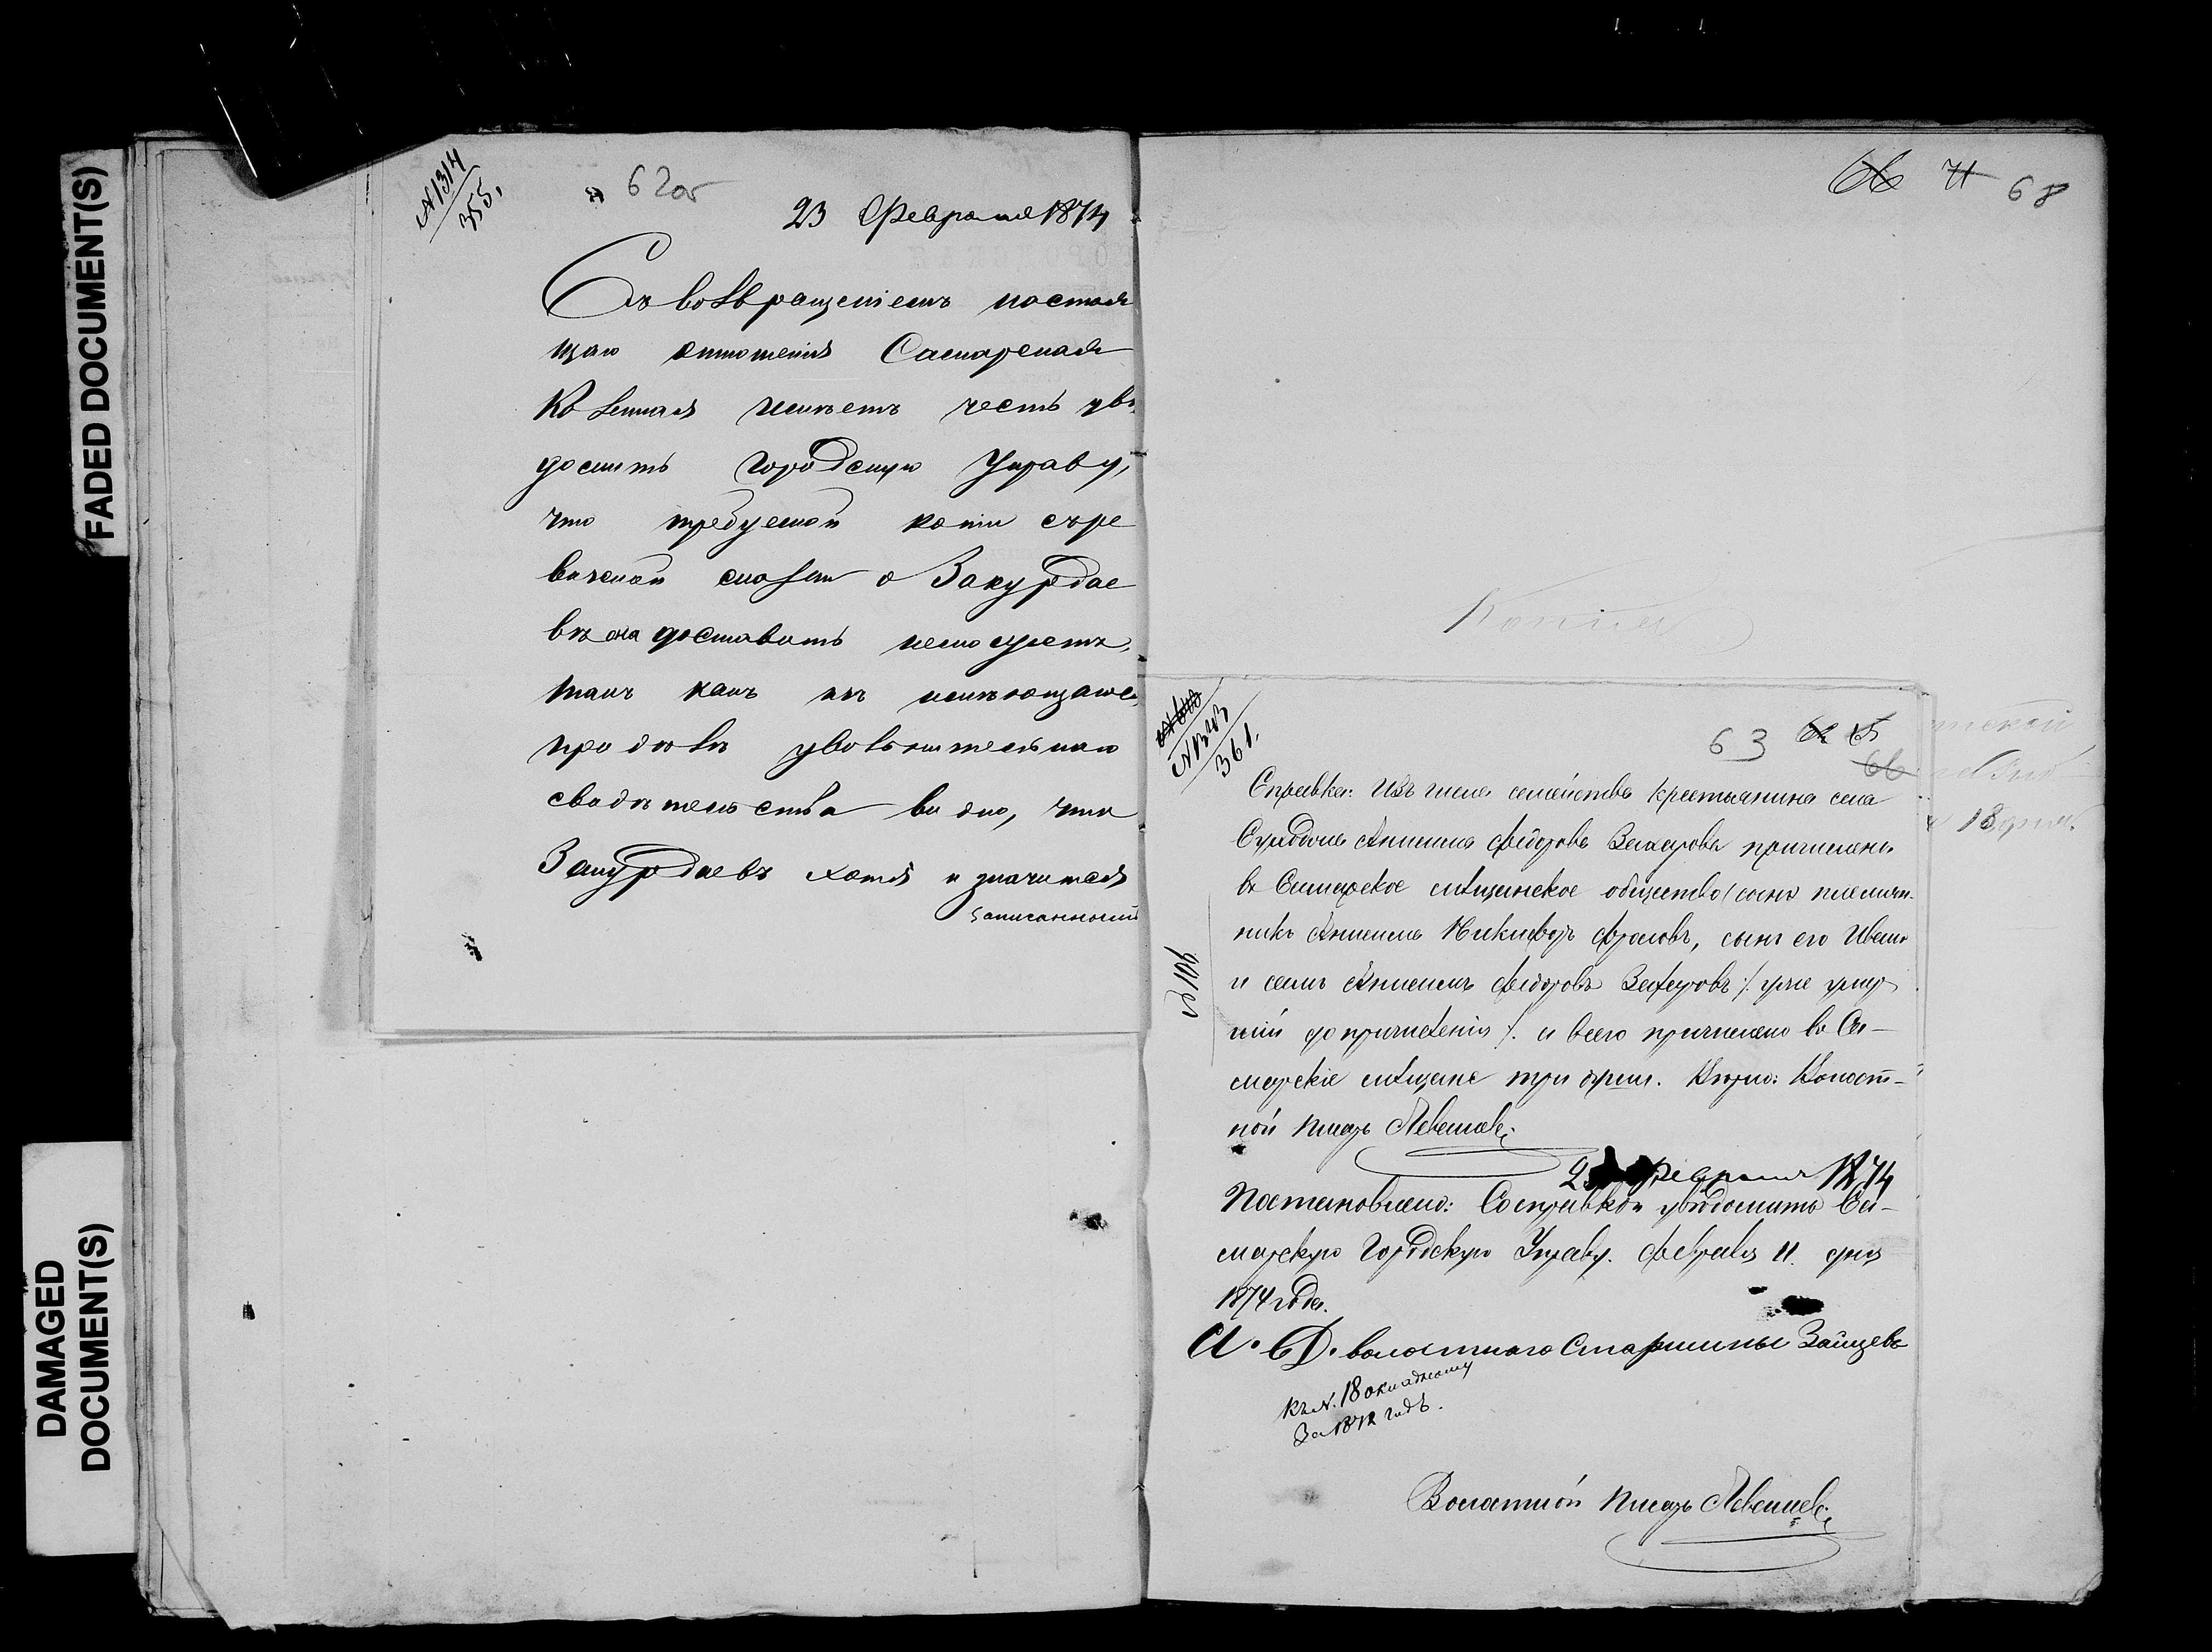 FADED DOCUMENT(S)
DAMAGED
DOCUMENT(S)
N 1314
355,
62об
23 Февраля 1874
Съ возвращеніемъ настоя
щаго отношенія Самарская
Казенная имѣетъ честь увѣ
домить Городскую Управу,
что требуемой копіи съ ре
визской сказки о Закурдае
вѣ она доставить неможетъ,
такъ какъ изъ имѣющагося
при дѣлѣ увольнительнаго
свидѣтельства видно, что
Закурдаевъ хотя и значится
записанный
71 68
Копія
63
66
361.
Справка: Изъ числа семейства крестьянина села
Анисима Федорова Захарова причислены
въ Самарское мѣщанское общество (сынъ племян-
никъ Анисима Никифоръ Фроловъ, сынъ его Иванъ
и самъ Анисимъ Федоровъ Захаровъ /. уже умер
шій до причисленія /. а всего причислено въ Са-
марскіе мѣщане три души. Волост-
ной писарь
Февраля 1874
Постановлено: Со справкой увѣдомить Са-
марскую Городскую Управу. Февраля 11 дня
1874 года.
И. Д. волостнаго Старшины Зайцевъ
Къ N. 18 окладному
За 1872 годъ.
Волостной писарь